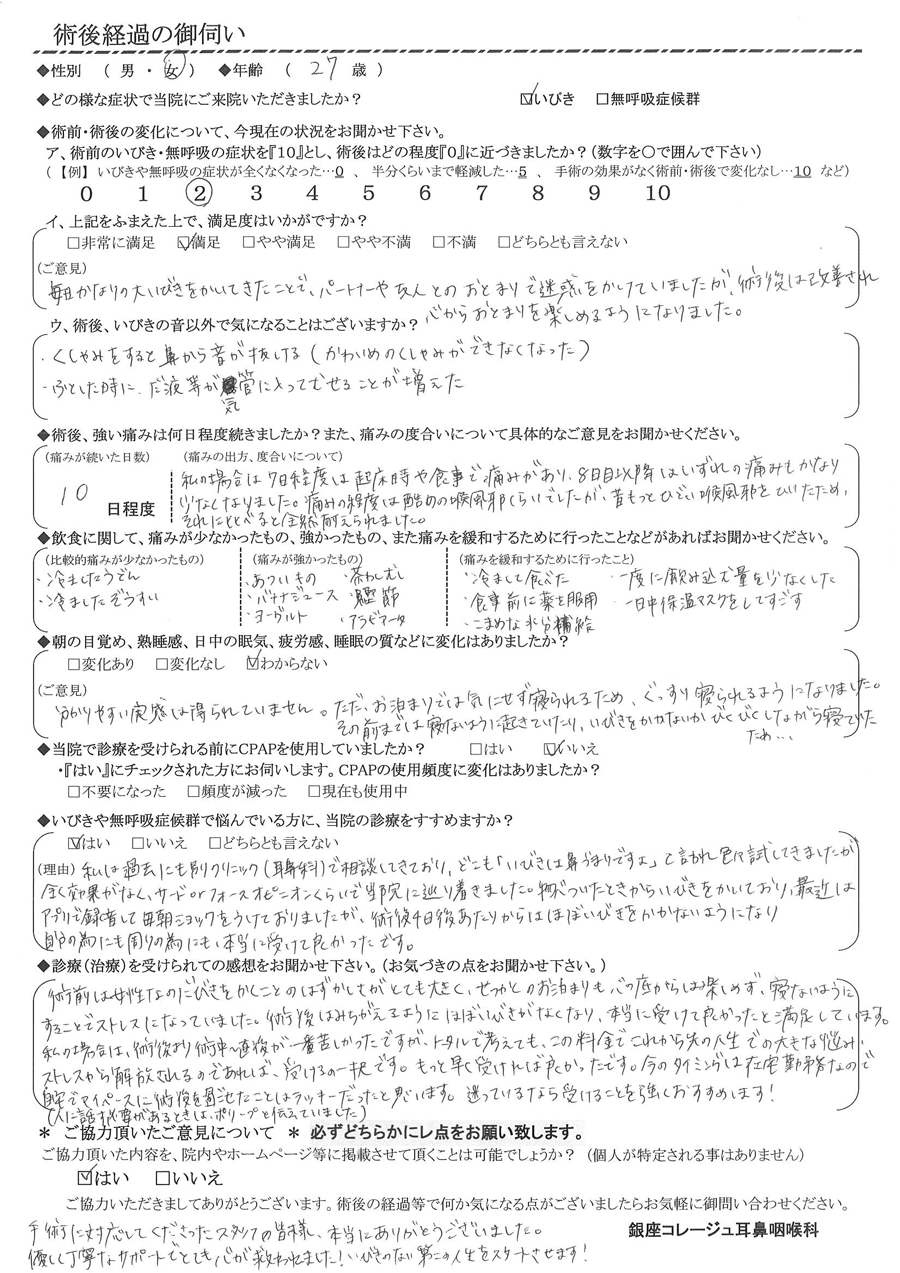 術後経過の御伺い
◆性別 （ 男 ・ 女 ） ◆年齢 （ 27 歳 ）
◆どの様な症状で当院にご来院いただきましたか？ ☑いびき □無呼吸症候群
◆術前・術後の変化について、今現在の状況をお聞かせ下さい。
ア、術前のいびき・無呼吸の症状を『10』とし、術後はどの程度『0』に近づきましたか？（数字を〇で囲んで下さい）
（【例】 いびきや無呼吸の症状が全くなくなった…0 、 半分くらいまで軽減した…5 、 手術の効果がなく術前・術後で変化なし…10 など）
0 1 2 3 4 5 6 7 8 9 10
イ、上記をふまえた上で、満足度はいかがですか？
□非常に満足 ☑満足 □やや満足 □やや不満 □不満 □どちらとも言えない
（ご意見）
毎日かなりの大いびきをかいてきたことで、パートナーや友人とのおとまりで迷惑をかけていましたが、術後は改善され
心からおとまりを楽しめるようになりました。
ウ、術後、いびきの音以外で気になることはございますか？
・くしゃみをすると鼻から音が抜ける（かわいめのくしゃみができなくなった）
・ふとした時に、だ液等が気管に入ってむせることが増えた
◆術後、強い痛みは何日程度続きましたか？また、痛みの度合いについて具体的なご意見をお聞かせください。
（痛みが続いた日数） （痛みの出方、度合いについて）
10 日程度
私の場合は7日程度は起床時や食事で痛みがあり、8日目以降はいずれの痛みもかなり
少なくなりました。痛みの程度は酷めの喉風邪くらいでしたが、昔もっとひどい喉風邪をひいたため、
それにくらべると全然耐えられました。
◆飲食に関して、痛みが少なかったもの、強かったもの、また痛みを緩和するために行ったことなどがあればお聞かせください。
（比較的痛みが少なかったもの） （痛みが強かったもの） （痛みを緩和するために行ったこと）
・冷ましたうどん ・あついもの ・茶わんむし ・冷まして食べた ・一度に飲み込む量を少なくした
・冷ましたぞうすい ・バナナジュース ・鰹節 ・食事前に薬を服用 ・一日中保温マスクをしてすごす
・ヨーグルト ・アラビアータ ・こまめな水分補給
◆朝の目覚め、熟睡感、日中の眠気、疲労感、睡眠の質などに変化はありましたか？
□変化あり □変化なし ☑わからない
（ご意見）
分かりやすい実感は得られていません。ただ、お泊まりでは気にせず寝られるため、ぐっすり寝られるようになりました。
その前までは寝ないように起きていたり、いびきをかかないかびくびくしながら寝ていた
ため…
◆当院で診療を受けられる前にCPAPを使用していましたか？ □はい ☑いいえ
・『はい』にチェックされた方にお伺いします。CPAPの使用頻度に変化はありましたか？
□不要になった □頻度が減った □現在も使用中
◆いびきや無呼吸症候群で悩んでいる方に、当院の診療をすすめますか？
☑はい □いいえ □どちらとも言えない
（理由）私は過去にも別クリニック（耳鼻科）で相談してきており、どこも「いびきは鼻づまりですよ」と言われ色々試してきましたが
全く効果がなく、サードorフォースオピニオンくらいで当院に辿り着きました。物ごころついたときからいびきをかいており、最近は
アプリで録音して毎朝ショックをうけておりましたが、術後4日後あたりからはほぼいびきをかかないようになり
自分の為にも周りの為にも、本当に受けて良かったです。
◆診療（治療）を受けられての感想をお聞かせ下さい。（お気づきの点をお聞かせ下さい。）
術前は女性なのにいびきをかくことのはずかしさがとても大きく、せっかくのお泊まりも心の底からは楽しめず、寝ないように
することでストレスになっていました。術後はみちがえるようにほぼいびきがなくなり、本当に受けて良かったと満足しています。
私の場合は、術後より術中〜直後が一番苦しかったですが、トータルで考えても、この料金でこれから先の人生での大きな悩み・
ストレスから解放されるのであれば、受けるの一択です。もっと早く受ければ良かったです。今のタイミングは在宅勤務なので
自宅でマイペースに術後を過ごせたことはラッキーだったと思います。迷っているなら受けることを強くおすすめします！
（人に話す必要があるときは、ポリープと伝えていました）
＊ ご協力頂いたご意見について ＊ 必ずどちらかにレ点をお願い致します。
ご協力頂いた内容を、院内やホームページ等に掲載させて頂くことは可能でしょうか？ （個人が特定される事はありません）
☑はい □いいえ
ご協力いただきましてありがとうございます。術後の経過等で何か気になる点がございましたらお気軽に御問い合わせください。
手術に対応してくださったスタッフの皆様、本当にありがとうございました。
銀座コレージュ耳鼻咽喉科
優しく丁寧なサポートでとても心が救われました！いびきのない第二の人生をスタートさせます！